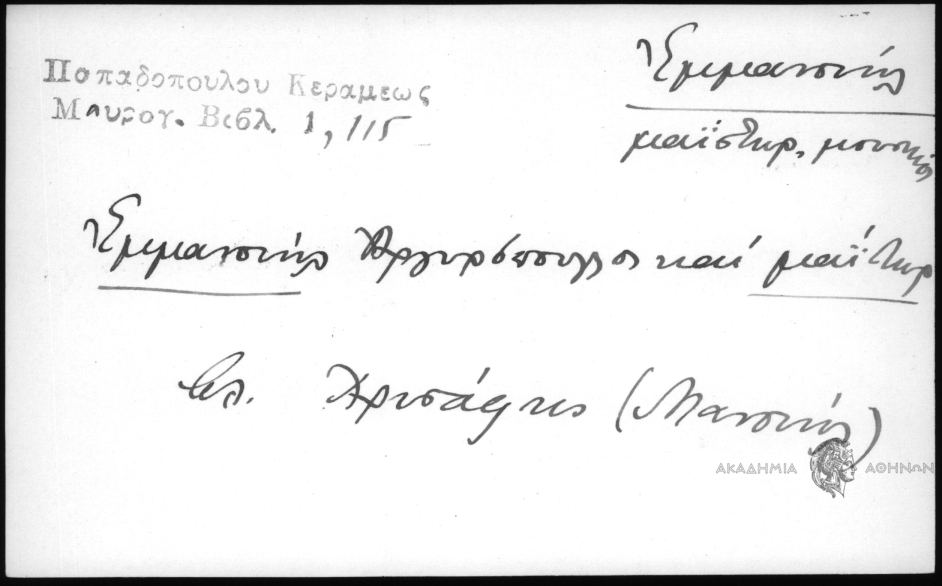 Παπαδοπούλου Κεραμεως
Μαυρογ. Βιβλ. 1, 115
Ἐμμανουήλ
μαΐστωρ, μουσικός
Ἐμμανουήλ Ἀργυρόπουλος καί μαΐστωρ
βλ. Χρυσάφης (Μανουήλ)
ΑΚΑΔΗΜΙΑ ΑΘΗΝΩΝ